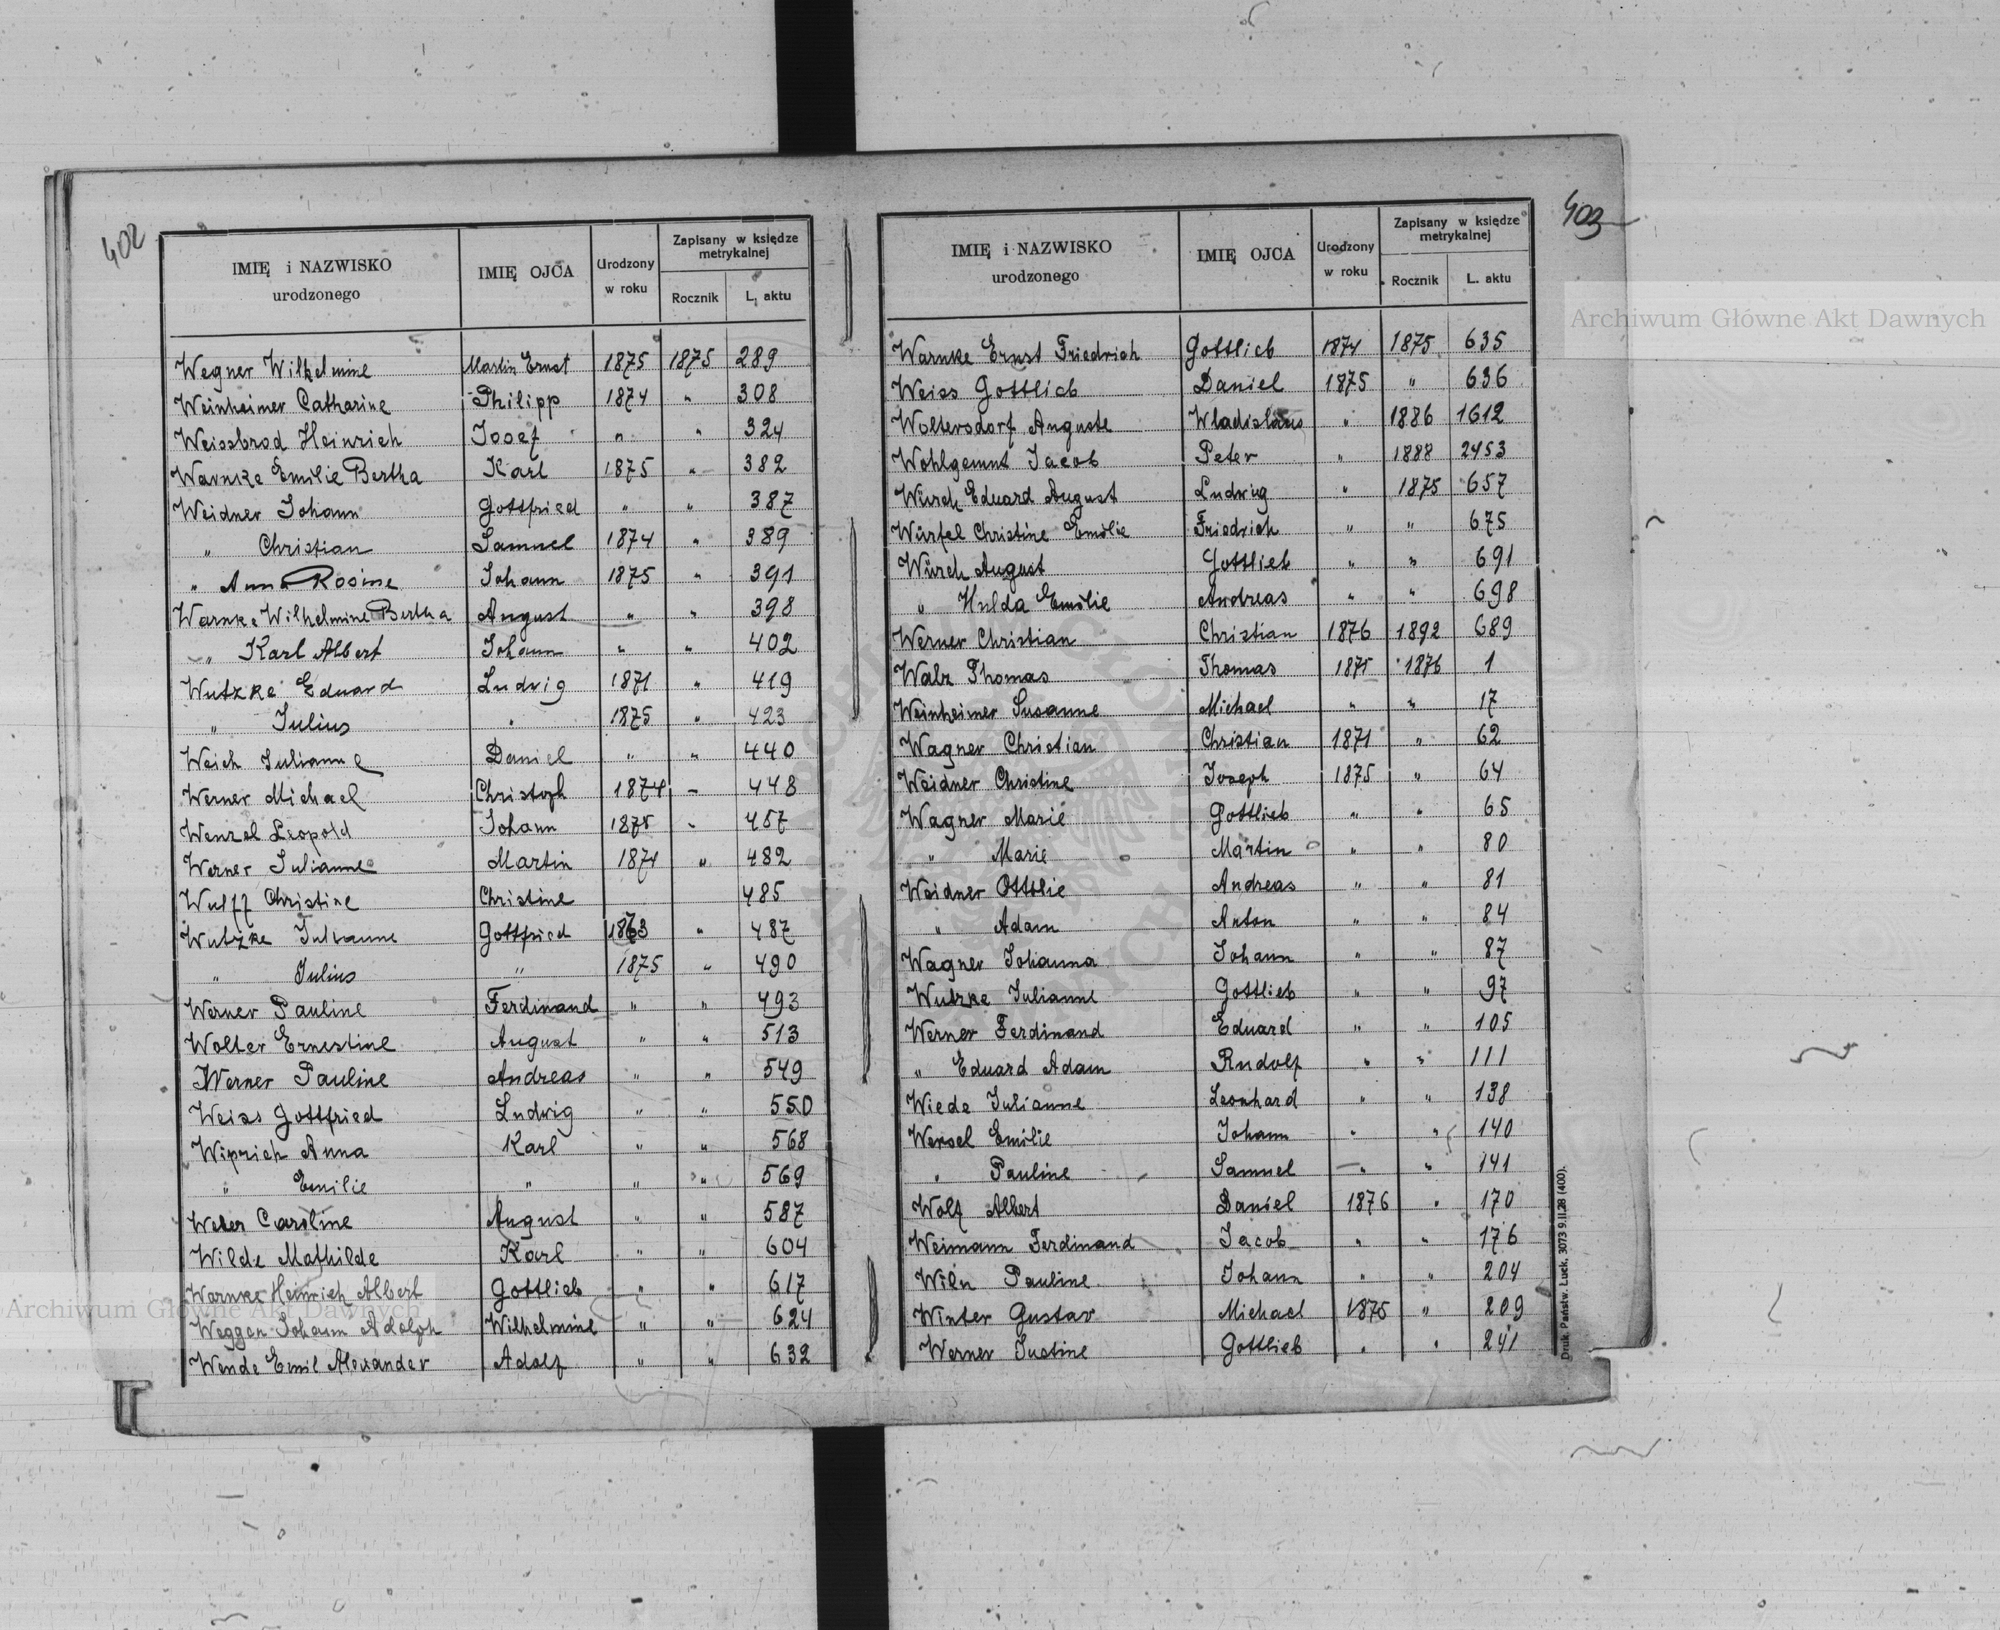 402
IMIĘ i NAZWISKO urodzonego | IMIĘ OJCA | Urodzony w roku | Zapisany w księdze metrykalnej
Rocznik | L. aktu
Wegner Wilhelmine | Martin Ernst | 1875 | 1875 | 289
Weinheimer Catharine | Philipp | 1874 | " | 308
Weissbrod Heinrich | Josef | " | " | 324
Warnke Emilie Bertha | Karl | 1875 | " | 382
Weidner Johann | Gottfried | " | " | 387
" Christian | Samuel | 1874 | " | 389
" Anna Rosine | Johann | 1875 | " | 391
Warnke Wilhelmine Bertha | August | " | " | 398
" Karl Albert | Johann | " | " | 402
Wutzke Eduard | Ludwig | 1871 | " | 419
" Julius | " | 1875 | " | 423
Weich Julianne | Daniel | " | " | 440
Werner Michael | Christoph | 1874 | " | 448
Wenzel Leopold | Johann | 1875 | " | 457
Werner Julianne | Martin | 1874 | " | 482
Wulff Christine | Christine | 485
Wutzke Julianne | Gottfried | 1873 | " | 487
" Julius | " | 1875 | " | 490
Werner Pauline | Ferdinand | " | " | 493
Wolter Ernestine | August | " | " | 513
Werner Pauline | Andreas | " | " | 549
Weiss Gottfried | Ludwig | " | " | 550
Wiprich Anna | Karl | " | " | 568
" Emilie | " | " | " | 569
Weber Caroline | August | " | " | 587
Wilde Mathilde | Karl | " | " | 604
Warnke Heinrich Albert | Gottlieb | " | " | 617
Weggen Johann Adolph | Wilhelmine | " | " | 624
Wende Emil Alexander | Adolf | " | " | 632
Archiwum Główne Akt Dawnych
403
IMIĘ i NAZWISKO urodzonego | IMIĘ OJCA | Urodzony w roku | Zapisany w księdze metrykalnej
Rocznik | L. aktu
Warnke Ernst Friedrich | Gottlieb | 1874 | 1875 | 635
Weiss Gottlieb | Daniel | 1875 | " | 636
Woltersdorf Auguste | Wladislaus | " | 1886 | 1612
Wohlgemut Jacob | Peter | " | 1888 | 2453
Würch Eduard August | Ludwig | " | 1875 | 657
Würfel Christine Emilie | Friedrich | " | " | 675
Würch August | Gottlieb | " | " | 691
" Hulda Emilie | Andreas | " | " | 698
Werner Christian | Christian | 1876 | 1892 | 689
Walz Thomas | Thomas | 1875 | 1876 | 1
Weinheimer Susanne | Michael | " | " | 17
Wagner Christian | Christian | 1871 | " | 62
Weidner Christine | Joseph | 1875 | " | 64
Wagner Marie | Gottlieb | " | " | 65
" Marie | Martin | " | " | 80
Weidner Ottilie | Andreas | " | " | 81
" Adam | Anton | " | " | 84
Wagner Johanna | Johann | " | " | 87
Wutzke Julianne | Gottlieb | " | " | 97
Werner Ferdinand | Eduard | " | " | 105
" Eduard Adam | Rudolf | " | " | 111
Wiede Julianne | Leonhard | " | " | 138
Wensel Emilie | Johann | " | " | 140
" Pauline | Samuel | " | " | 141
Wolf Albert | Daniel | 1876 | " | 170
Weimann Ferdinand | Jacob | " | " | 176
Wiln Pauline | Johann | " | " | 204
Winter Gustav | Michael | 1875 | " | 209
Werner Justine | Gottlieb | " | " | 241
Archiwum Główne Akt Dawnych
Druk. Państw. Łuck. 3073 9.II.28 (400).